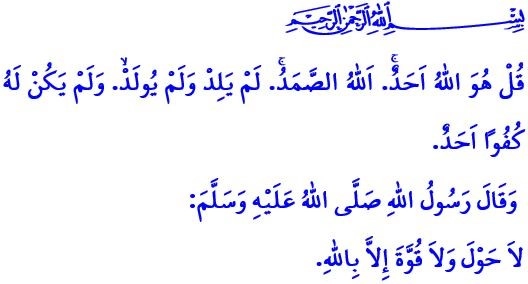 بِسْمِ اللهِ الرَّحْمٰنِ الرَّحِيمِ
قُلْ هُوَ اللهُ اَحَدٌۚ. اَللهُ الصَّمَدُۚ. لَمْ يَلِدْ وَلَمْ يُولَدْۙ. وَلَمْ يَكُنْ لَهُ
كُفُوًا اَحَدٌ.
وَقَالَ رَسُولُ اللهِ صَلَّى اللهُ عَلَيْهِ وَسَلَّمَ:
لاَ حَوْلَ وَلاَ قُوَّةَ إِلاَّ بِاللهِ.